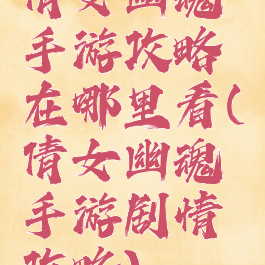 倩女幽魂
手游攻略
在哪里看(
倩女幽魂
手游剧情
攻略)